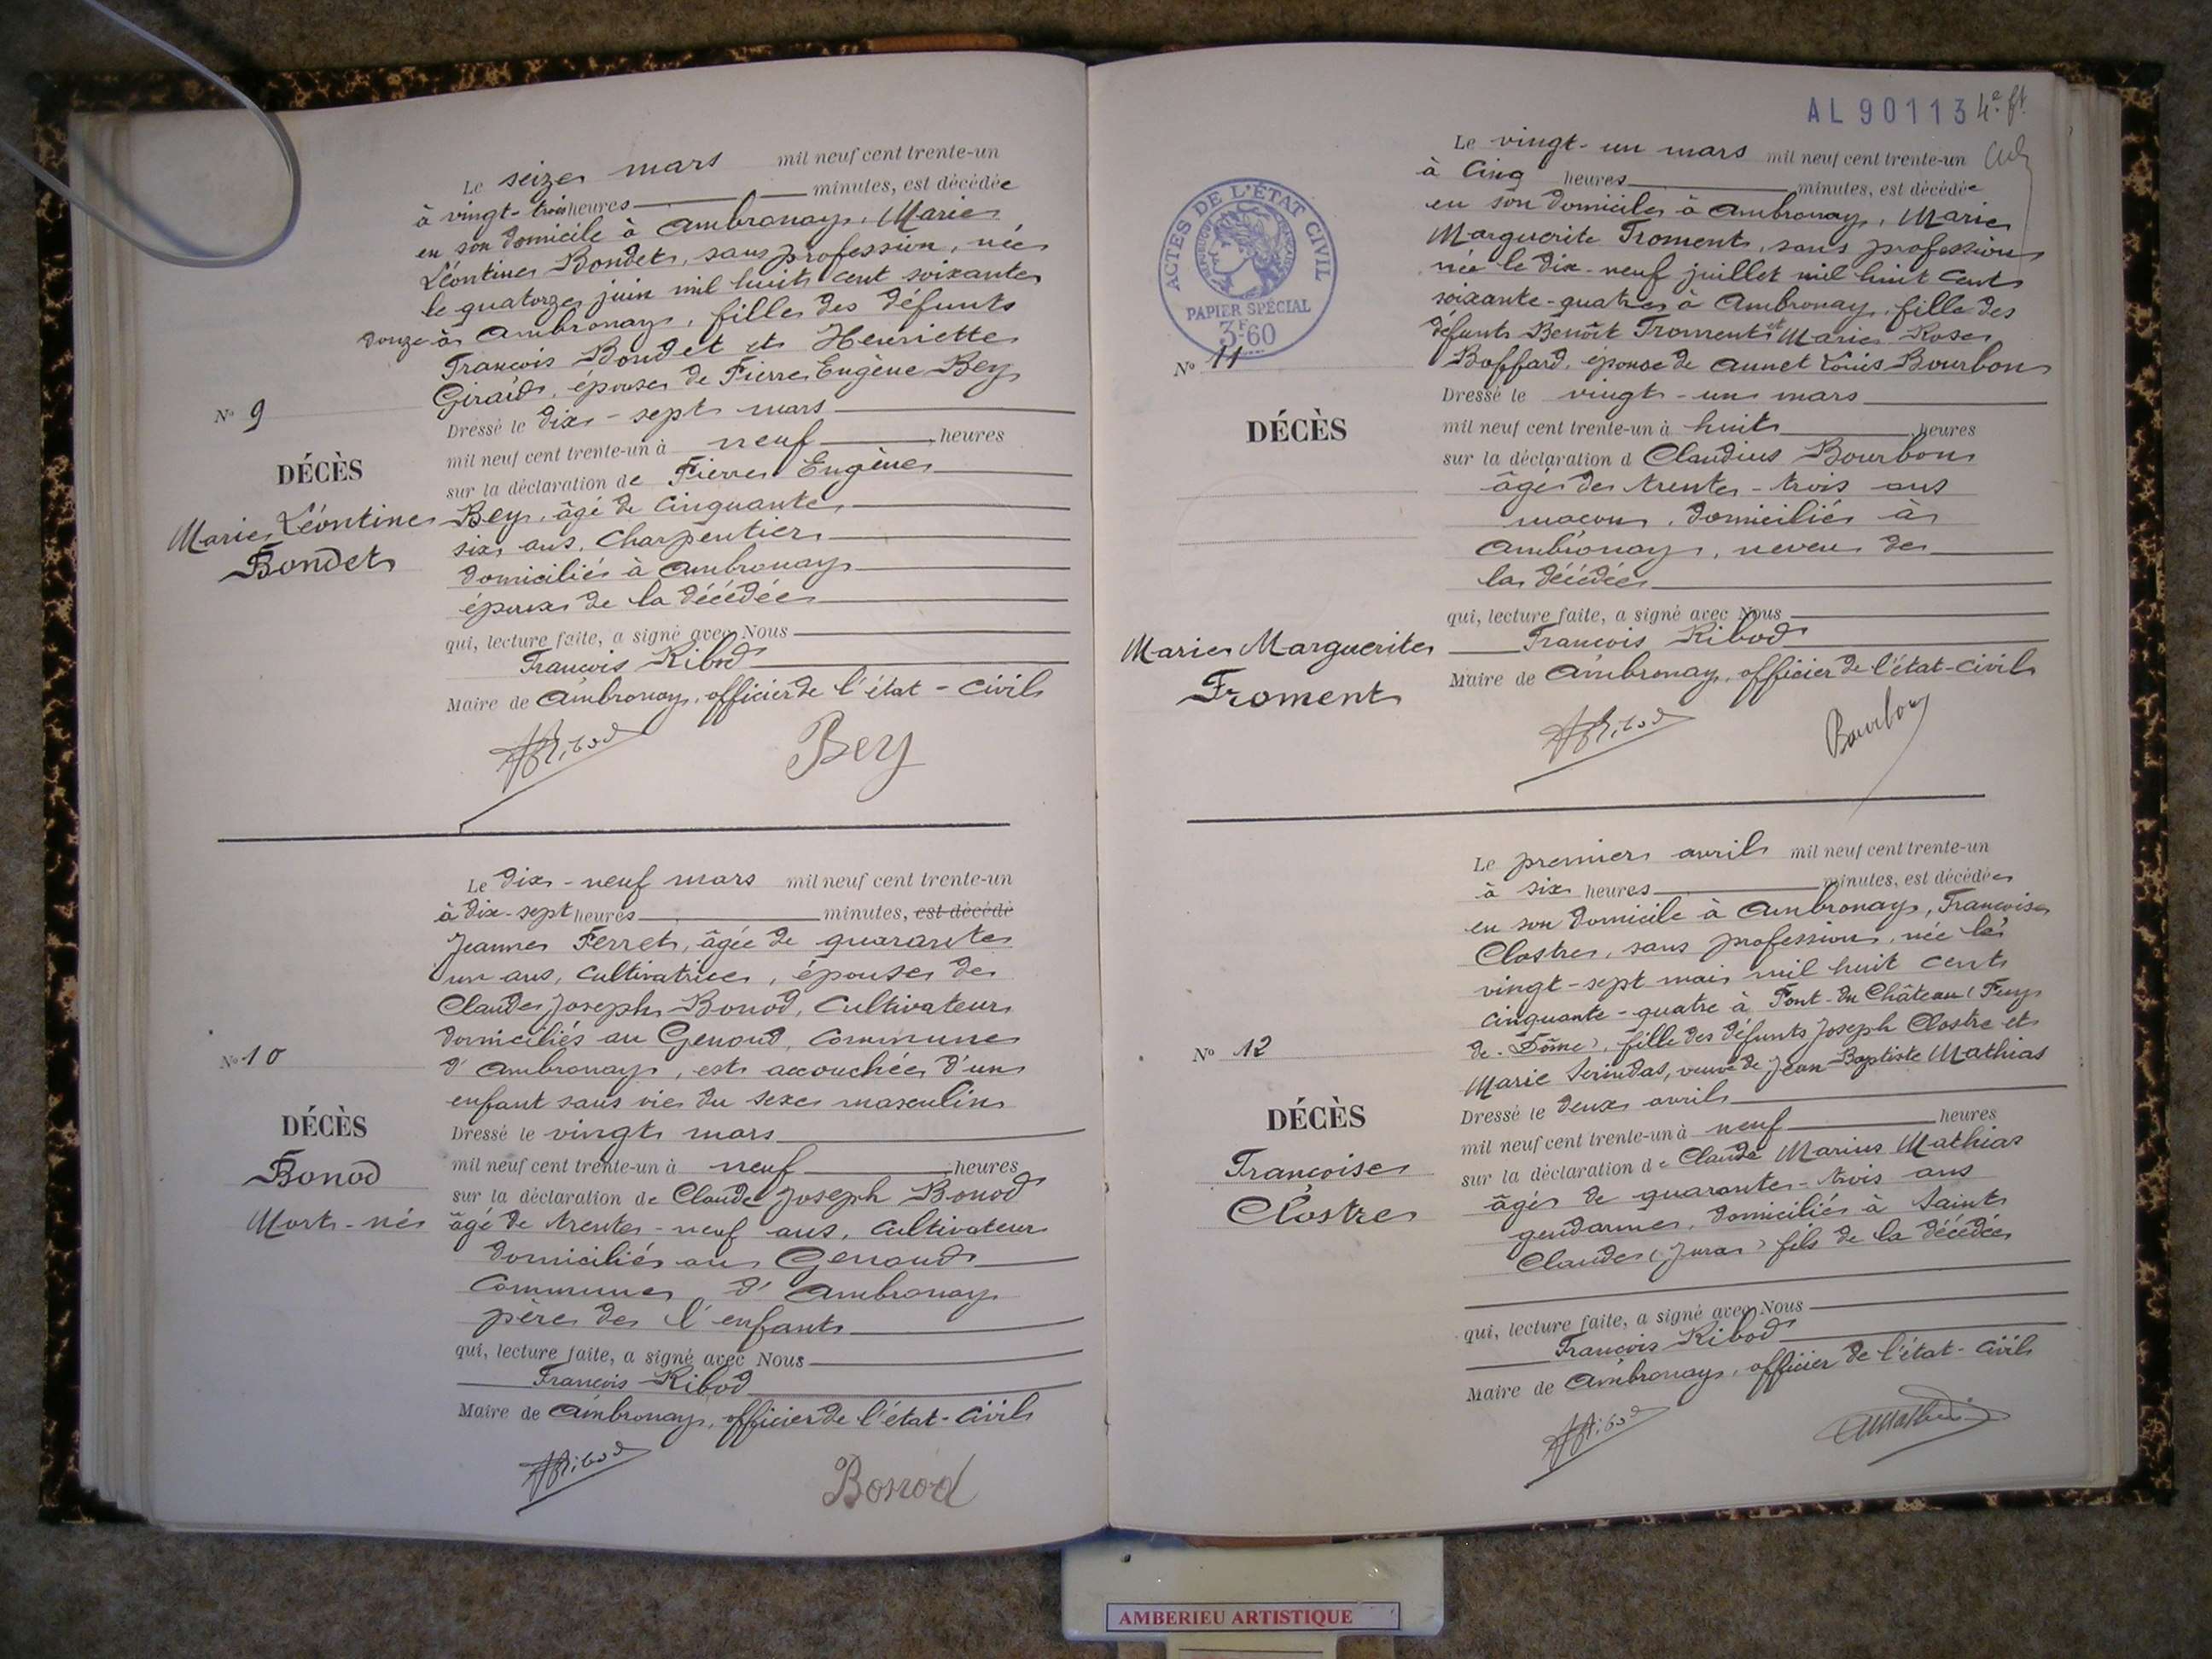 Le seize mars mil neuf cent trente-un
à vingt-trois heures minutes, est décédée
en son domicile à Ambronay, Marie
Léontine Bondet, sans profession, née
le quatorze juin mil huit cent soixante
douze à Ambronay, fille des défunts
François Bondet et Henriette
Giraud, épouse de Pierre Eugène Bey
Dressé le dix-sept mars
mil neuf cent trente-un à neuf heures
sur la déclaration de Pierre Eugène
Bey, âgé de cinquante
six ans, charpentier
domicilié à Ambronay
époux de la décédée
qui, lecture faite, a signé avec Nous
François Ribod
Maire de Ambronay, officier de l'état-civil
Ribod
Bey
N° 9
DÉCÈS
Marie Léontine
Bondet
Le dix-neuf mars mil neuf cent trente-un
à dix-sept heures minutes, est décédé
Jeanne Perret, âgée de quarante
un ans, cultivatrice, épouse de
Claude Joseph Bonod, cultivateur
domiciliés au Genoud, commune
d'Ambronay, est accouchée d'un
enfant sans vie du sexe masculin
Dressé le vingt mars
mil neuf cent trente-un à neuf heures
sur la déclaration de Claude Joseph Bonod
âgé de trente-neuf ans, cultivateur
domicilié au Genoud
commune d'Ambronay
père de l'enfant
qui, lecture faite, a signé avec Nous
François Ribod
Maire de Ambronay, officier de l'état-civil
Ribod
Bonod
N° 10
DÉCÈS
Bonod
Mort-né
AL 90113 4e ft
ACTES DE L'ÉTAT CIVIL
PAPIER SPÉCIAL
3F60
Le vingt-un mars mil neuf cent trente-un
à cinq heures minutes, est décédée
en son domicile à Ambronay, Marie
Marguerite Froment, sans profession
née le dix-neuf juillet mil huit cent
soixante-quatre à Ambronay, fille des
défunts Benoît Froment et Marie Rose
Boffard, épouse de Aunet Louis Bourbon
Dressé le vingt-un mars
mil neuf cent trente-un à huit heures
sur la déclaration d Claudius Bourbon
âgé de trente-trois ans
maçon, domicilié à
Ambronay, neveu de
la décédée
qui, lecture faite, a signé avec Nous
François Ribod
Maire de Ambronay, officier de l'état-civil
Ribod
Bourbon
N° 11
DÉCÈS
Marie Marguerite
Froment
Le premier avril mil neuf cent trente-un
à six heures minutes, est décédée
en son domicile à Ambronay, Françoise
Clostre, sans profession, née le
vingt-sept mai mil huit cent
cinquante-quatre à Pont-du-Château (Puy
de-Dôme), fille des défunts Joseph Clostre et
Marie Serindas, veuve de Jean-Baptiste Mathias
Dressé le deux avril
mil neuf cent trente-un à neuf heures
sur la déclaration de Claude Marius Mathias
âgé de quarante-trois ans
gendarme, domicilié à Saint
Claude (Jura) fils de la décédée
qui, lecture faite, a signé avec Nous
François Ribod
Maire de Ambronay, officier de l'état-civil
Ribod
N° 12
DÉCÈS
Françoise
Clostre
AMBERIEU ARTISTIQUE